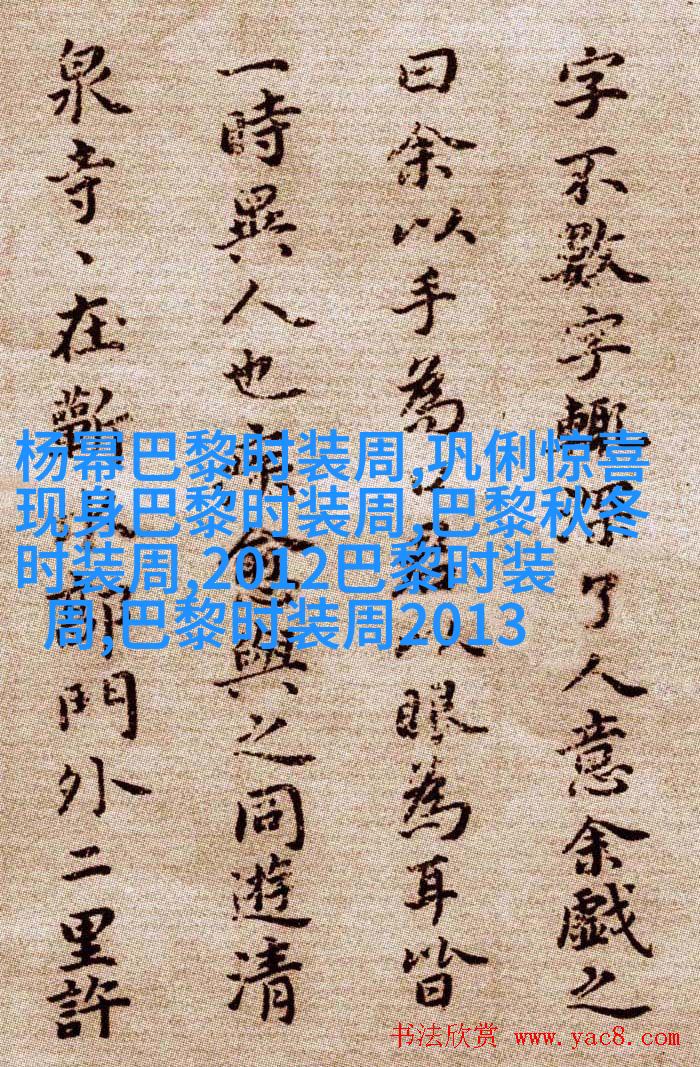 字不數字輒了人意余戲之
曰余以手為眼為耳皆
一時異人也愈與之同遊清
泉寺、在蘄門外二里許
杨幂巴黎时装周,巩俐惊喜
现身巴黎时装周,巴黎秋冬
时装周,2012巴黎时装
周,巴黎时装周2013
书法欣赏 www.yac8.com